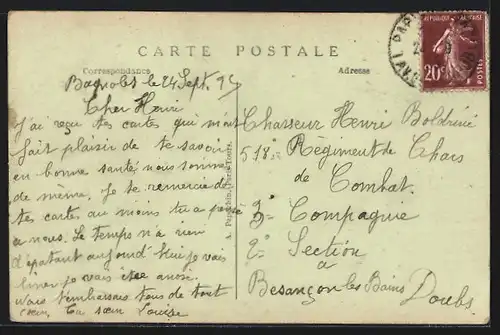 CARTE POSTALE
Correspondance
Adresse
RÉPUBLIQUE FRANÇAISE
20c
POSTES
PARIS
Bagnolet le 24 Sept.
Cher Henri
J'ai reçu tes cartes qui m'ont
fait plaisir de te savoir
en bonne santé, nous sommes
de même. Je te remercie de
tes cartes au moins tu a pensé
a nous. Le temps n'a rien
d'épatant aujourd'hui je vais
vous t'embrassons tous de tout
cœur Ta sœur Louise
Chasseur Henri Boldrini
518e Régiment de Chars
de Combat.
Compagnie
2e Section
a
Besançon les Bains
Doubs